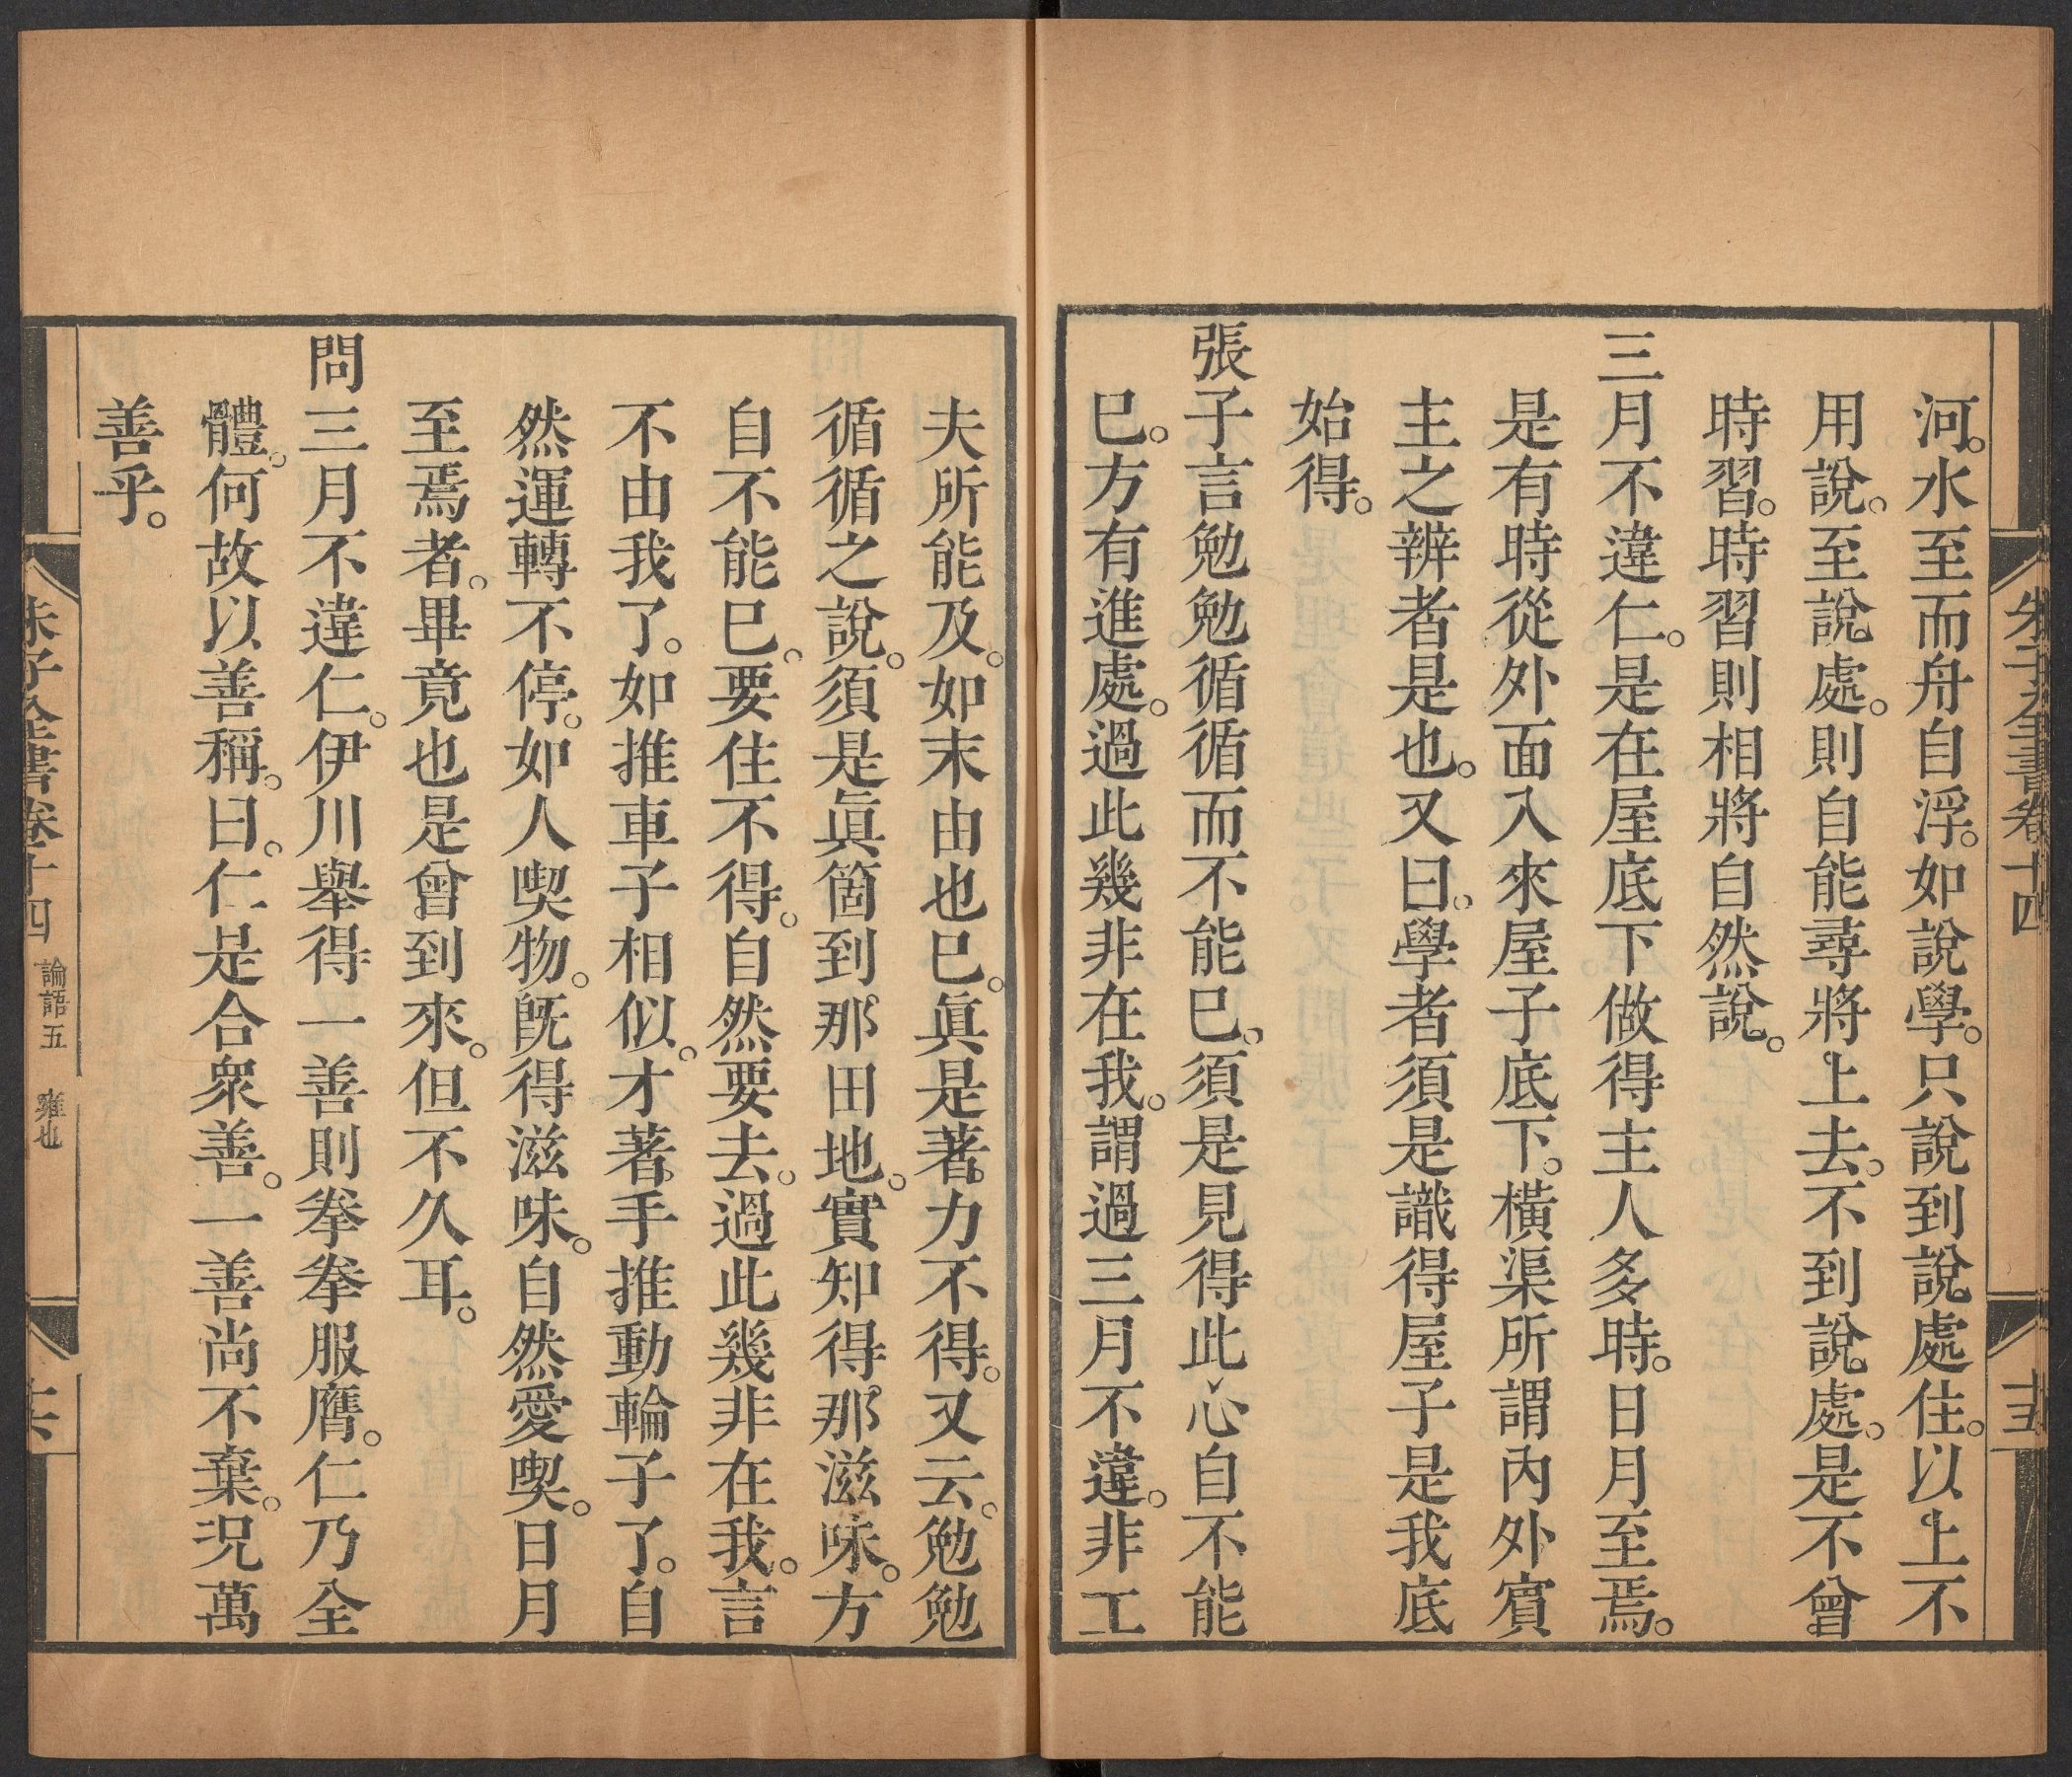 朱子全書卷十四
十五
河。水至而舟自浮。如說學。只說到說處住。以上不
用說。至說處。則自能尋將上去。不到說處。是不曾
時習。時習則相將自然說。
三月不違仁。是在屋底下做得主人多時。日月至焉。
是有時從外面入來屋子底下。橫渠所謂內外賓
主之辨者是也。又曰。學者須是識得屋子是我底
始得。
張子言勉勉循循而不能巳。須是見得此心自不能
巳。方有進處。過此幾非在我。謂過三月不違。非工
夫所能及。如末由也巳。眞是著力不得。又云。勉勉
循循之說。須是眞箇到那田地。實知得那滋味。方
自不能巳。要住不得。自然要去。過此幾非在我。言
不由我了。如推車子相似。才著手推動輪子了。自
然運轉不停。如人喫物。旣得滋味。自然愛喫。日月
至焉者。畢竟也是曾到來。但不久耳。
問三月不違仁。伊川舉得一善則拳拳服膺。仁乃全
體。何故以善稱。曰。仁是合衆善。一善尚不棄。況萬
善乎。
朱子全書卷十四 論語五 雍也
十六